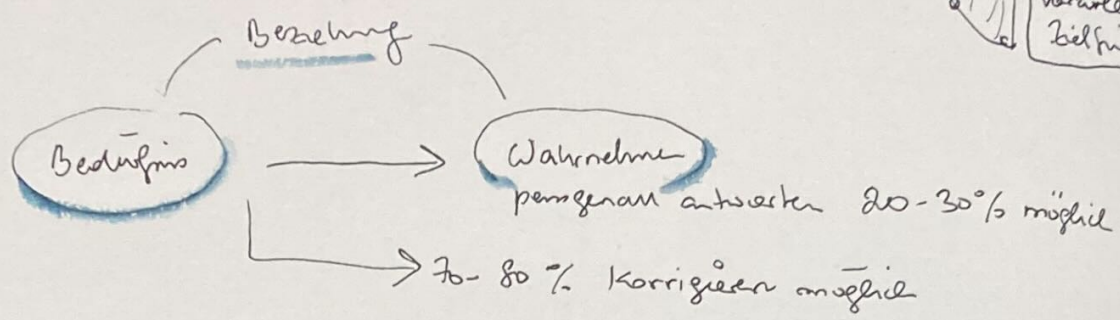 Beziehung
Bedürfnis
Wahrnehmen
passgenau antworten 20-30% möglich
70-80% Korrigieren möglich